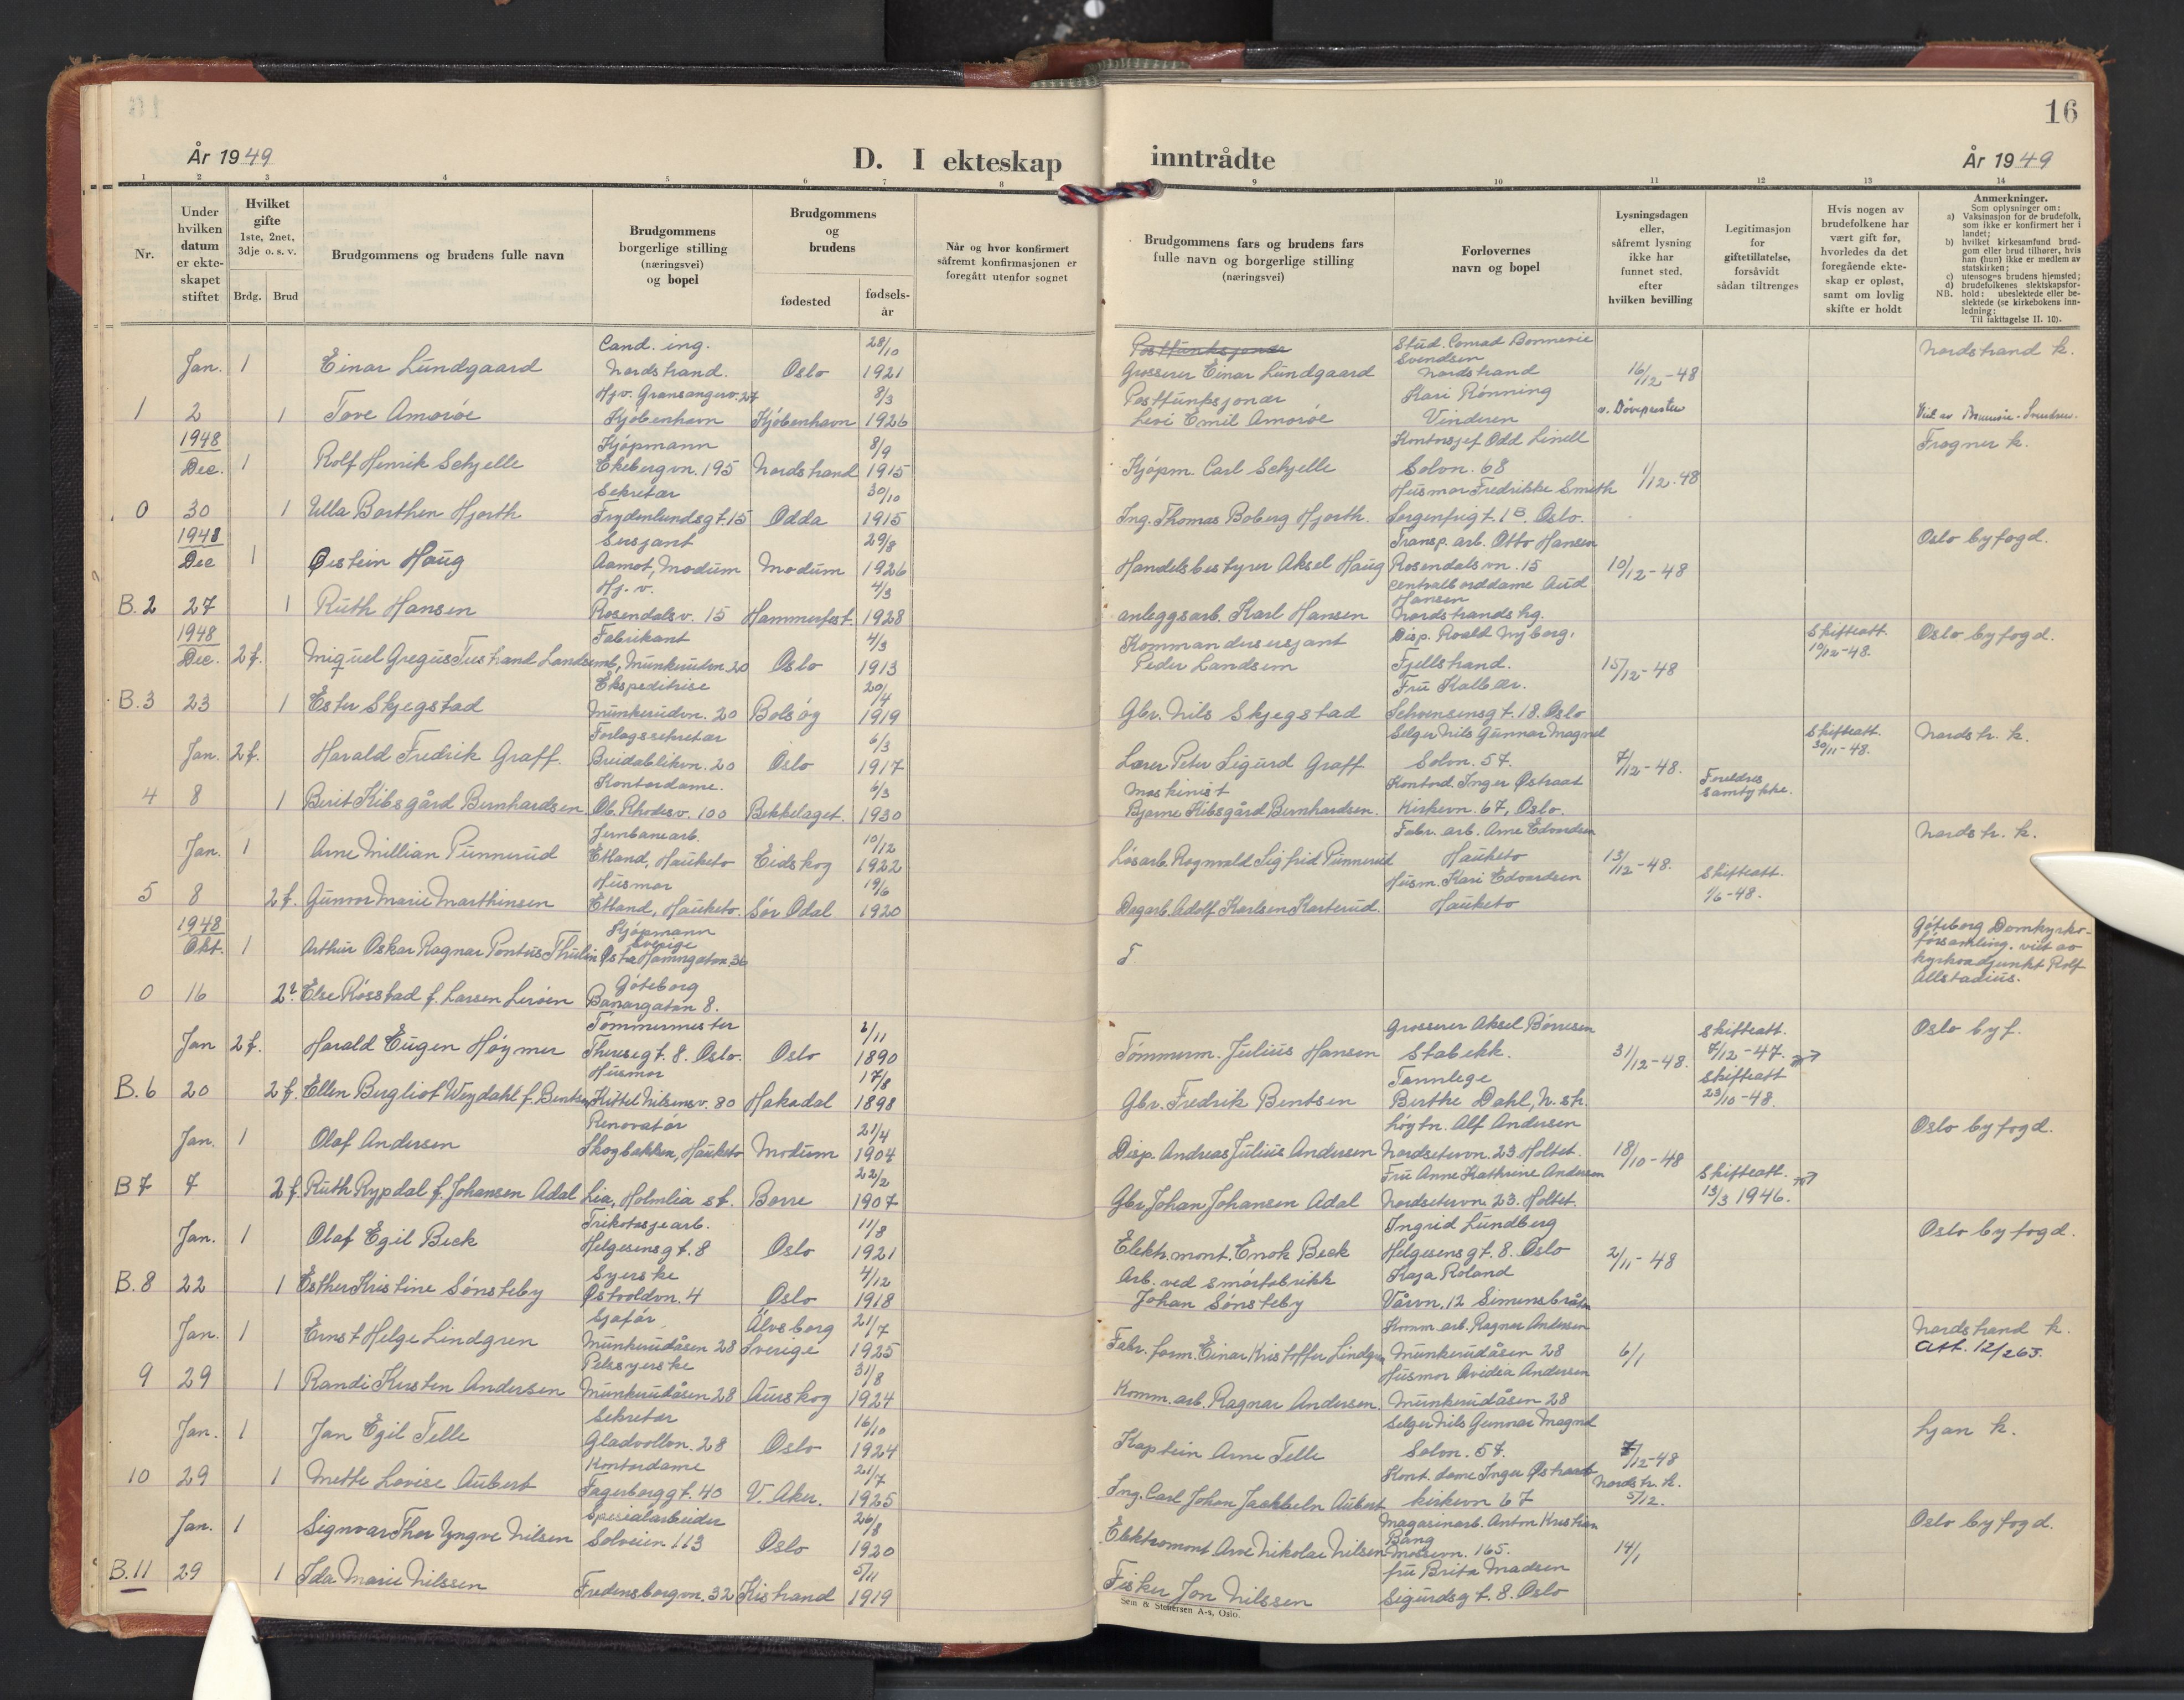 16
År 1949
D. I ekteskap
inntrådte
År 1949
1 2 3 4 5 6 7 8 9 10 11 12 13 14
Nr.
Under hvilken datum er ekte-skapet stiftet
Hvilket gifte 1ste, 2net, 3dje o. s. v.
Brdg. Brud
Brudgommens og brudens fulle navn
Brudgommens borgerlige stilling (næringsvei) og bopel
Brudgommens og brudens
fødested
fødsels-år
Når og hvor konfirmert såfremt konfirmasjonen er foregått utenfor sognet
Brudgommens fars og brudens fars fulle navn og borgerlige stilling (næringsvei)
Forlovernes navn og bopel
Lysningsdagen eller, såfremt lysning ikke har funnet sted, efter hvilken bevilling
Legitimasjon for giftetillatelse, forsåvidt sådan tiltrenges
Hvis nogen av brudefolkene har vært gift før, hvorledes da det foregående ekte-skap er opløst, samt om lovlig skifte er holdt
Anmerkninger.
Som oplysninger om:
a) Vaksinasjon for de brudefolk, som ikke er konfirmert her i landet;
b) hvilket kirkesamfund brud-gom eller brud tilhører, hvis han (hun) ikke er medlem av statskirken;
c) utensogns brudens hjemsted;
d) brudefolkenes slektskapsfor-hold: ubeslektede eller be-slektede (se kirkebokens inn-ledning:
NB.
Til iakttagelse II. 10).
Jan. 1 Einar Lundgaard Cand. ing. Nordstrand. Oslo 28/10 1921 Postfunksjonær Grosserer Einar Lundgaard Stud. Conrad Bonnevie Svendsen Nordstrand 16/12-48 Nordstrand k.
1 2 1 Tove Amorøe Hjv. Gransangerv. 27 Kjøbenhavn Kjøbenhavn 8/3 1926 Postfunksjonær Levi Emil Amorøe Kari Rønning Vinderen v. Døveprester Viet av Bonnevie-Svendsen.
1948 Dec. 1 Rolf Henrik Schjelle Kjøpmann Ekebergvn. 195 Nordstrand 8/9 1915 Kjøpm. Carl Schjelle Kontorsjef Odd Linell Solvn. 68 1/12-48 Frogner k.
0 30 1 Ulla Barthen Hjorth Sekretær Frydenlundsgt. 15 Odda 30/10 1915 Ing. Thomas Boberg Hjorth. Husmor Fredrikke Smith Sorgenfrigt. 1B. Oslo.
1948 Dec 1 Øistein Haug Sersjant Aamot, Modum Modum 29/8 1926 Handelsbestyrer Aksel Haug Transp. arb. Otto Hansen Rosendalsvn. 15 10/12-48 Oslo byfogd.
B. 2 27 1 Ruth Hansen Hj. v. Rosendalsv. 15 Hammerfest. 4/3 1928 anleggsarb. Karl Hansen Centralborddame Aud Hansen Nordstrandshg.
1948 Dec. 2 f. Miquel Gregus Teistrand Landsem Fabrikant Munkerudvn. 20 Oslo 4/3 1913 Kommandersersjant Peder Landsem Disp. Roald Nyborg, Fjellstrand. 15/12-48 Skifteatt. 10/12-48. Oslo byfogd.
B. 3 23 1 Ester Skjegstad Ekspeditrise Munkerudvn. 20 Bolsøy 20/4 1919 Gbr. Nils Skjegstad Fru Kalbær. Schwensensgt. 18. Oslo
Jan. 2 f. Harald Fredrik Graff. Forlagssekretær Breidablikvn. 20 Oslo 6/3 1917 Lærer Peter Sigurd Graff Selger Nils Gunnar Magnel Solvn. 57. 7/12-48. Skifteatt. 30/11-48. Nordstr. k.
4 8 1 Berit Kibsgård Bernhardsen Kontordame. Ob. Rhodesv. 100 Bekkelaget. 6/3 1930 Maskinist Bjarne Kibsgård Bernhardsen. Kontord. Inger Østraat Kirkevn. 67, Oslo. Foreldres samtykke.
Jan. 1 Arne Millian Punnerud Jernbanearb. Etland, Hauketo Eidskog 10/12 1922 Løsarb. Ragnvald Sigfrid Punnerud Fabr. arb. Arne Edvardsen Hauketo 13/12-48. Nordstr. k.
5 8 2 f. Gunvor Marie Marthinsen Husmor Etland, Hauketo. Sør Odal 19/6 1920 Dagarb. Adolf Karlsen Karterud. Husm. Kari Edvardsen Hauketo Skifteatt. 1/6-48.
1948 Okt. 1 Arthur Oskar Ragnar Pontus Thulin Kjøpmann Sverige Østra Hamngatan 36 Göteborg Domkyrko-församling. viet av kyrkoadjunkt Rolf Allstadius.
0 16 2? Else Røsstad f. Larsen Lerøen Göteborg Banérgatan 8.
Jan 2 f. Harald Eugen Høymer Tømmermester Theresegt. 8. Oslo. Oslo 2/11 1890 Tømmerm. Julius Hansen Grosserer Aksel Børresen Stabekk. 31/12-48. Skifteatt. 7/12-47. Oslo byf.
B. 6 20 2 f. Ellen Bergliot Weydahl f. Bentsen Husmor Kittel Nilsensv. 80 Hakadal 17/8 1898 Gbr. Fredrik Bentsen Tannlege Berthe Dahl, N. str. Skifteatt 23/10-48.
Jan. 1 Olaf Andersen Renovatør Skogbakken, Hauketo Modum 21/4 1904 Disp. Andreas Julius Andersen Løytn. Alf Andersen Nordseterv. 23. Holtet. 18/10-48 Oslo byfogd.
B 7 7 2 f. Ruth Rypdal f. Johansen Adal Lia, Holmlia st. Borre 22/2 1907 Gbr Johan Johansen Adal Fru Anne Kathrine Andersen Nordsetervn 23. Holtet. Skifteatt. 13/3 1946.
Jan. 1 Olaf Egil Beck Trikotasjearb. Helgesensgt. 8 Oslo 11/8 1921 Elektr. mont. Enok Beck Ingrid Lundberg Helgesensgt. 8. Oslo 2/11-48 Oslo byfogd.
B. 8 22 1 Esther Kristine Sønsteby Syerske Østvoldvn. 4 Oslo 4/12 1918 Arb. ved smørfabrikk Johan Sønsteby Kaja Roland Vårvn. 12 Simensbråten
Jan. 1 Ernst Helge Lindgren Sjafør Munkerudåsen 28 Älvsborg Sverige 21/7 1925 Fabr. form. Einar Kristoffer Lindgren Komm. arb. Ragnar Andersen Munkerudåsen 28 6/1 Nordstrand k. Att. 12/263.
9 29 1 Randi Kersten Andersen Pelssyerske Munkerudåsen 28 Aurskog 31/8 1924 Komm. arb. Ragnar Andersen. Husmor Avidia Andersen Munkerudåsen 28
Jan. 1 Jan Egil Telle Sekretær Gladvollvn. 28 Oslo 16/10 1924 Kaptein Arne Telle Selger Nils Gunnar Magnel Solvn. 57. 7/12-48 Ljan k.
10 29 1 Mette Lovise Aubert Kontordame Fagerborggt. 40 V. Aker. 21/7 1925 Ing. Carl Johan Jackbeln Aubert Kont. dame Inger Østraat Kirkevn 67 Nordstr. k. 5/12.
Jan. 1 Signvar Thor Yngve Nilsen Spesialarbeider Solveien 113 Oslo 26/8 1920 Elektromont. Arve Nikolai Nilsen Magasinarb. Anton Kristian Bang Mossevn. 165. 14/1 Oslo byfogd.
B. 11 29 1 Ida Marie Nilssen Fredensborgvn. 32 Kistrand 5/11 1919 Fisker Jon Nilssen fru Brita Madsen Sigurdsgt. 8. Oslo
Sem & Stenersen A-s, Oslo.